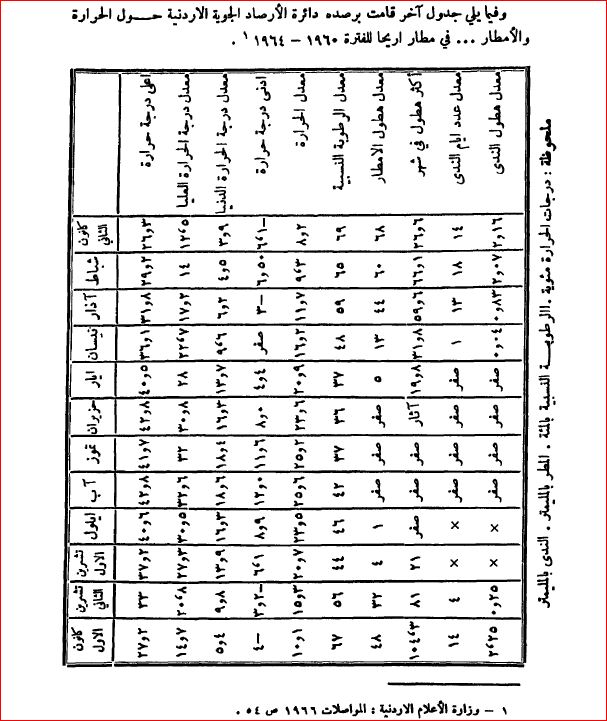 وفيما يلي جدول آخر قامت برصده دائرة الأرصاد الجوية الاردنية حـــول الحرارة
والأمطار ... في مطار اريحا للفترة ١٩٦٠ – ١٩٦٤ ١ .
كانون الثاني شباط آذار نيسان ايار حزيران تموز آب ايلول تشرين الاول تشرين الثاني كانون الاول
اعلى درجة حرارة ٢٦و٣ ٢٩و٢ ٣١و٨ ٣٦و١ ٤٠و٥ ٤٢و٨ ٤١و٧ ٤٢و٨ ٤٠و٦ ٣٧و٢ ٣٣ ٢٧و٢
معدل درجة الحرارة العليا ١٢،٥ ١٤ ١٧و٢ ٢٢،٧ ٢٨ ٣٠و٨ ٣٢ ٣٢و٦ ٣٠و٥ ٢٧و٣ ٢٠،٨ ١٤و٧
معدل درجة الحرارة الدنيا ٣و٩ ٤و٥ ٦و٢ ٩،٦ ١٣و٧ ١٦و٣ ١٨و٤ ١٨و٦ ١٦و٣ ٨و٩ ٤و٥
ادنى درجة حرارة –١،٦ –٣ صفر ٤و٤ ٨و٠ ١١و٦ ١٢و٠ ٨و٩ ٦،١ –٢و٣ –٤
معدل الحرارة ٨و٢ ٩،٣ ١١و٧ ١٦و٢ ٢٠و٩ ٢٣و٦ ٢٥و٢ ٢٥و٦ ٢٣و٥ ٢٠و٧ ١٥و٣ ١٠و١
معدل الرطوبة النسبية ٦٩ ٦٥ ٥٩ ٤٨ ٣٧ ٣٦ ٣٧ ٤٢ ٤٦ ٤٤ ٥٦ ٦٧
معدل هطول الامطار ٦٨ ٦٠ ٤٤ ١٣ ٥ صفر صفر صفر ١ ٤ ٣٢ ٤٨
أكثر هطول في شهر ٢٦و٦ ٦٦و١ ٥٩و٦ ٣١و٨ ١٩و٨ آثار صفر صفر صفر ٢١ ٨١ ١٠٤،٣
معدل عدد ايام الندى ١٤ ١٨ ١٣ ١ صفر صفر صفر صفر × × ٤ ١٤
معدل هطول الندى ٢و١٦ ٢و٠٧ ٠و٨٣ ٠و٠٤ صفر صفر صفر صفر × × ٠و٢٥ ٢،٢٥
ملحوظة : درجات الحرارة مئوية . الرطوبــة النسبية بالمئة . المطر بالمليمتر . الندى بالمليمتر
١ – وزارة الأعلام الاردنية : المواصلات ١٩٦٦ ص ٥٤ .